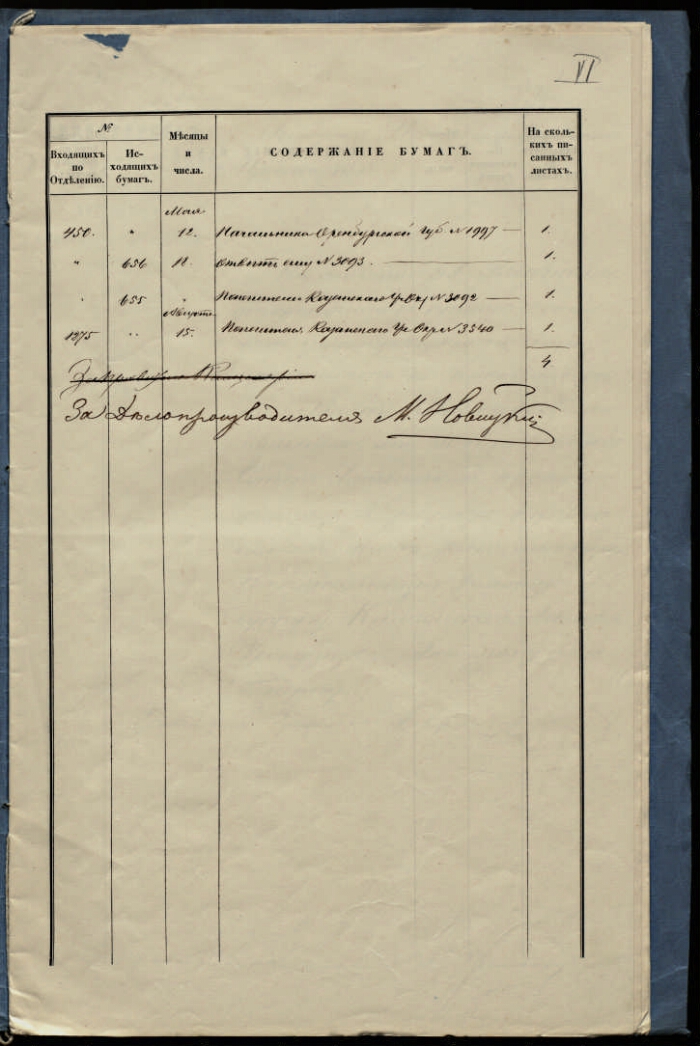 VI
№
Входящихъ по Отдѣленію.
Ис-ходящихъ бумагъ.
Мѣсяцы и числа.
СОДЕРЖАНІЕ БУМАГЪ.
На сколь-кихъ пи-санныхъ листахъ.
Мая
450. " 12. Начальника Оренбургской Губ № 1997 — 1.
" 656 12. Отвѣтъ ему № 3093. — 1.
" 655 " Попечителю Казанскаго Уч Окр № 3092 — 1.
Августа
1375 " 15. Попечителя Казанскаго Уч Окр № 3540 — 1.
4
За Дѣлопроизводителя М. Новицкій